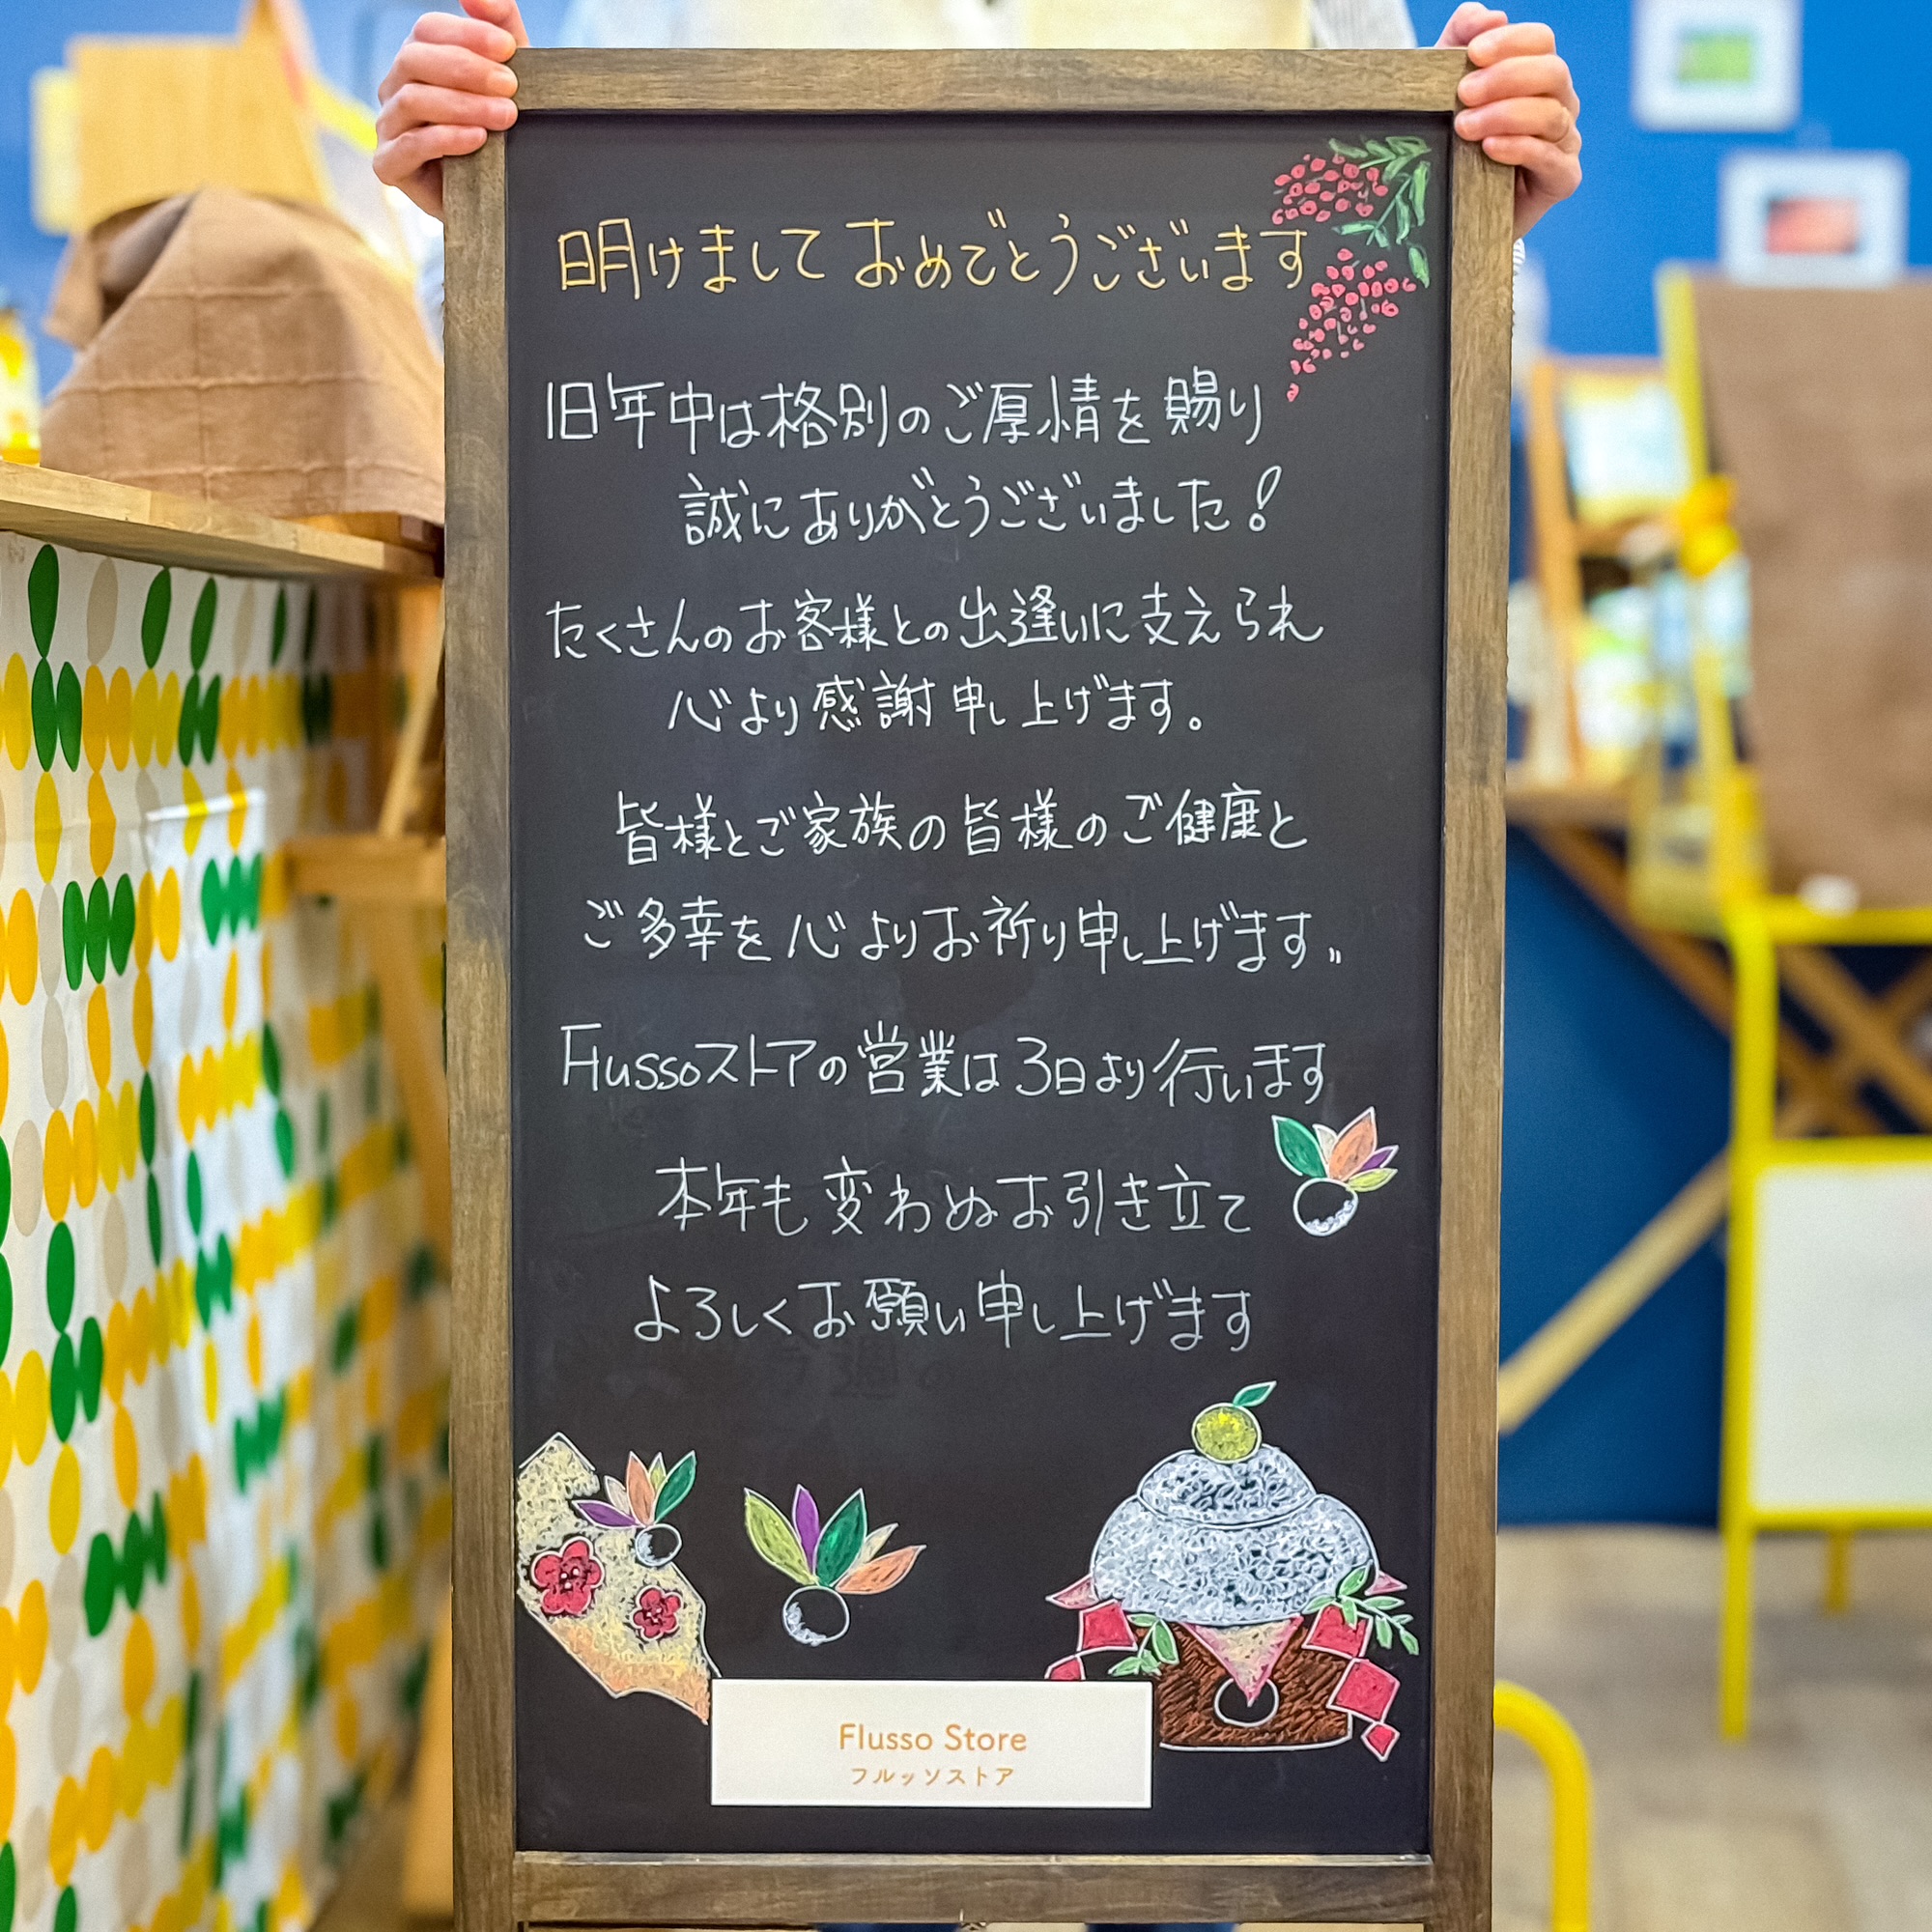 明けましておめでとうございます
旧年中は格別のご厚情を賜り
誠にありがとうございました!
たくさんのお客様との出逢いに支えられ
心より感謝申し上げます。
皆様とご家族の皆様のご健康と
ご多幸を心よりお祈り申し上げます。
Flussoストアの営業は3日より行います
本年も変わぬお引き立て
よろしくお願い申し上げます
Flusso Store
フルッソストア